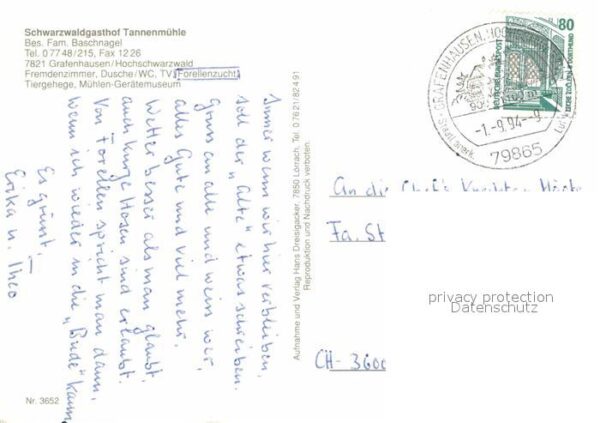 Schwarzwaldgasthof Tannenmühle
Bes. Fam. Baschnagel
Tel. 0 77 48/215, Fax 12 26
7821 Grafenhausen/Hochschwarzwald
Fremdenzimmer, Dusche/WC, TV, Forellenzucht,
Tiergehege, Mühlen-Gerätemuseum
Immer wenn wir hier verbleiben,
soll der „Alte" etwas schreiben.
Gruss an alle und wenn wir,
alles Gute und viel mehr.
Wetter besser als man glaubt,
auch kurze Hosen sind erlaubt.
Von Forellen spricht man dann,
wenn ich wieder in die „Bude" kann.
Es grüsst,
Erika u. Theo
Nr. 3652
Aufnahme und Verlag Hans Dreisigacker, 7850 Lörrach, Tel. 0 76 21/8 24 91
Reproduktion und Nachdruck verboten.
GRAFENHAUSEN, HOCHSCHW
-1.-9.94--9
79865
80
DEUTSCHE BUNDESPOST
ZECHE ZOLLERN II DORTMUND
An die Chefs
Fa. St
CH-3600
privacy protection
Datenschutz